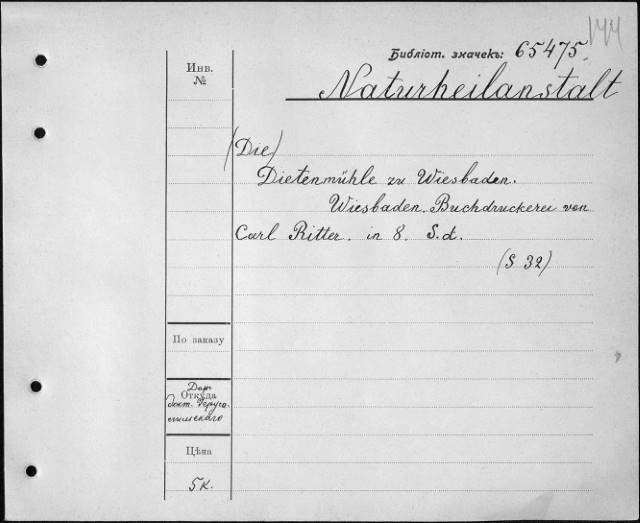 144
Библіот. значекъ: 65475.
Инв.
№
Naturheilanstalt
(Die)
Dietenmühle zu Wiesbaden.
Wiesbaden. Buchdruckerei von
Carl Ritter. in 8. S.d.
(S 32)
По заказу
Даръ
Откуда
докт.
Цѣна
5к.